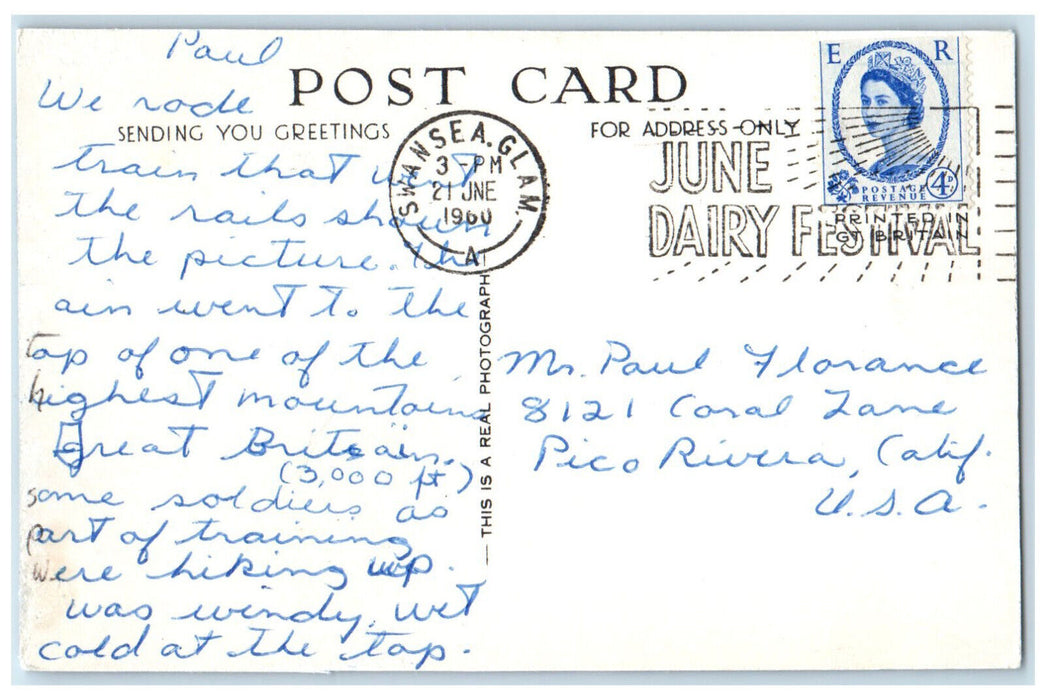 Paul
POST CARD
We rode
SENDING YOU GREETINGS
FOR ADDRESS ONLY
train that went
the rails shown
the picture. the
ain went to the
top of one of the
highest mountains
Great Britain.
(3,000 ft)
some soldiers as
part of training
were hiking up.
was windy, wet
cold at the top.
THIS IS A REAL PHOTOGRAPH
SWANSEA. GLAM.
3 - PM
21 JNE
1960
A
JUNE
DAIRY FESTIVAL
E R
POSTAGE
REVENUE
4D
PRINTED IN
GT BRITAIN
Mr. Paul Florance
8121 Coral Lane
Pico Rivera, Calif.
U.S.A.